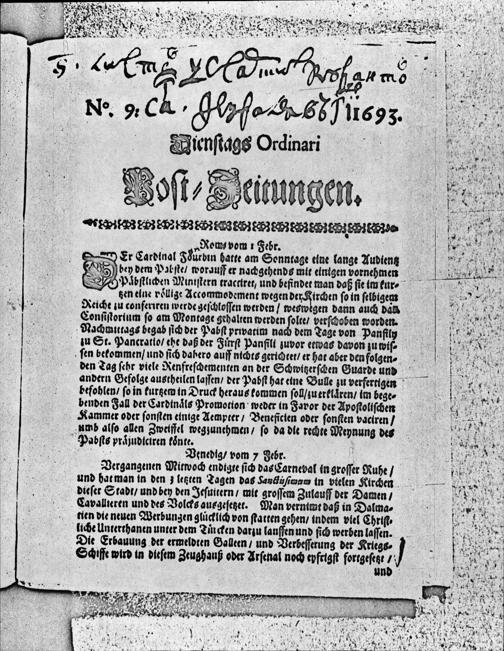 No. 9: 1693.
Dienstags Ordinari
Post-Zeitungen.
Rom/ vom 1 Febr.
DEr Cardinal Fourbin hatte am Sonntage eine lange Audientz
bey dem Pabste/ worauff er nachgehends mit einigen vornehmen
Päbstlichen Ministern tractiret/ und befindet man daß sie im kur-
tzen eine völlige Accommodement wegen der Kirchen so in selbigem
Reiche zu conferiren werde geschlossen werden/ weswegen dann auch das
Consistorium so am Montage gehalten werden solte/ verschoben worden.
Nachmittags begab sich der Pabst privatim nach dem Tage von Pansily
zu St. Pancratio/ ehe daß der Fürst Pansili zuvor etwas davon zu wis-
sen bekommen/ und sich dahero auff nichts gerichtet/ er hat aber den folgen-
den Tag sehr viele Renfreschementen an der Schwitzerschen Guarde und
andern Gefolge austheilen lassen/ der Pabst hat eine Bulle zu verfertigen
befohlen/ so in kurtzem in Druck heraus kommen soll/ zu erklären/ im bege-
benden Fall der Cardinäls Promotion weder in Favor der Apostolischen
Kammer oder sonsten einige Aempter/ Beneficien oder sonsten vaciren/
umb also allen Zweiffel wegzunehmen/ so da die rechte Meynung des
Pabsts präjudiciren könte.
Venedig/ vom 7 Febr.
Vergangenen Mitwoch endigte sich das Carneval in grosser Ruhe/
und hat man in den 3 letzten Tagen das Sanctissimum in vielen Kirchen
dieser Stadt/ und bey den Jesuitern/ mit grossem Zulauff der Damen/
Cavallieren und des Volcks ausgesetzet. Man vernimt daß in Dalma-
tien die neuen Werbungen glücklich von statten gehen/ indem viel Christ-
liche Unterthanen unter dem Türcken dartzu lauffen und sich werben lassen.
Die Erbauung der ermeldten Galleen/ und Verbesserung der Kriegs-
Schiffe wird in diesem Zeughauß oder Arsenal noch eyfrigst fortgesetzt/
und